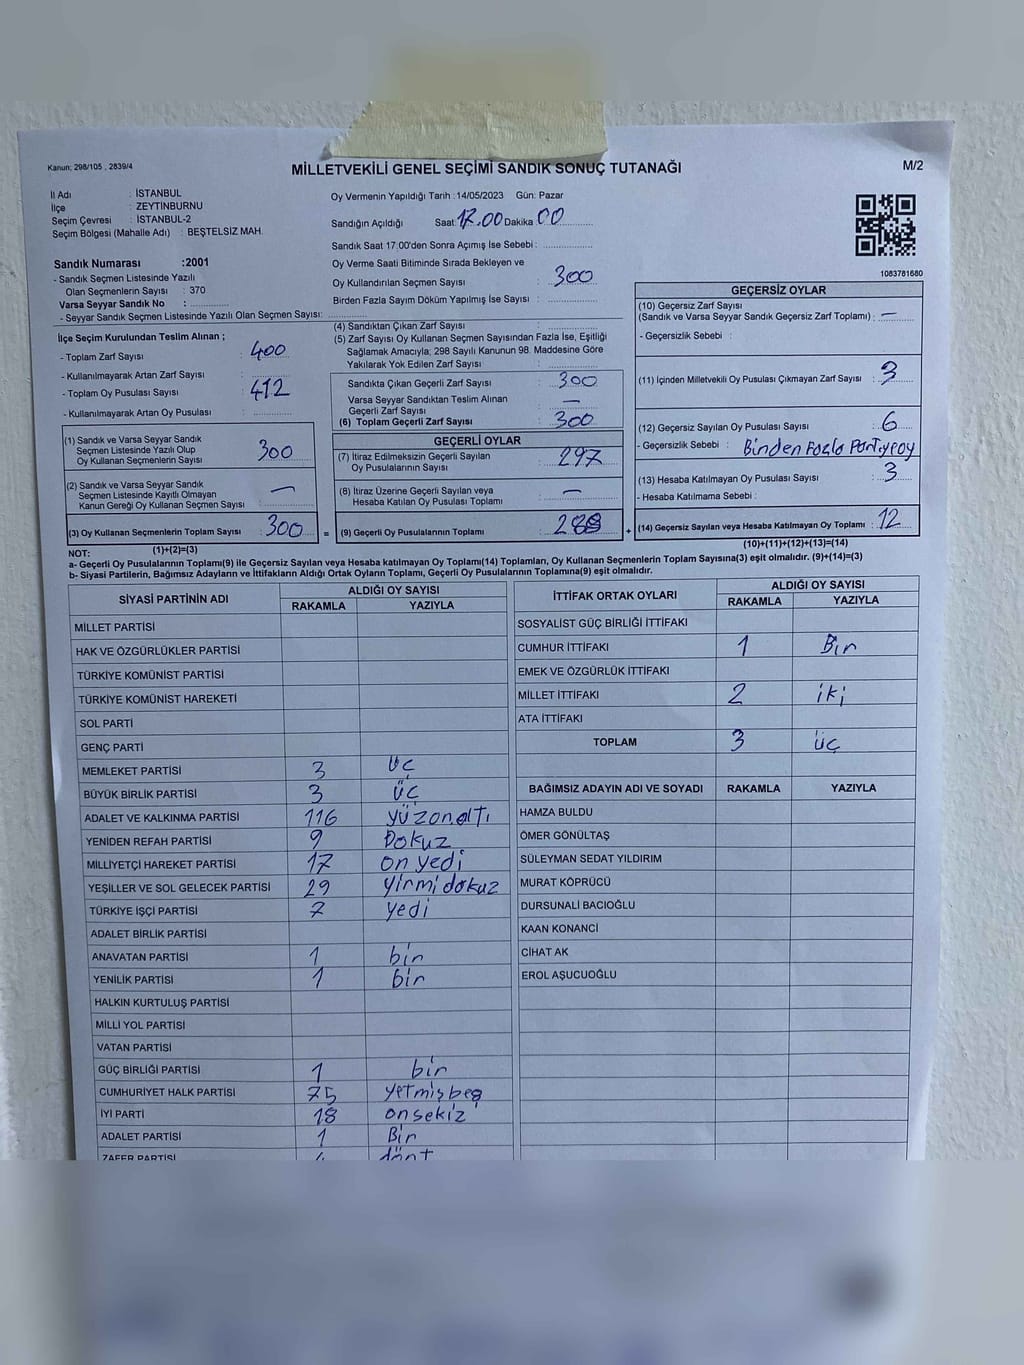 Kanun; 298/105 , 2839/4
MİLLETVEKİLİ GENEL SEÇİMİ SANDIK SONUÇ TUTANAĞI
M/2
İl Adı : İSTANBUL
İlçe : ZEYTİNBURNU
Seçim Çevresi : İSTANBUL-2
Seçim Bölgesi (Mahalle Adı) : BEŞTELSİZ MAH.
Oy Vermenin Yapıldığı Tarih :14/05/2023 Gün: Pazar
Sandığın Açıldığı Saat: 17.00 Dakika 00
Sandık Saat 17.00'den Sonra Açımış İse Sebebi :
Oy Verme Saati Bitiminde Sırada Bekleyen ve
Oy Kullandırılan Seçmen Sayısı : 300
Birden Fazla Sayım Döküm Yapılmış İse Sayısı :
1083781680
Sandık Numarası :2001
- Sandık Seçmen Listesinde Yazılı
Olan Seçmenlerin Sayısı : 370
Varsa Seyyar Sandık No :
- Seyyar Sandık Seçmen Listesinde Yazılı Olan Seçmen Sayısı:
İlçe Seçim Kurulundan Teslim Alınan ;
- Toplam Zarf Sayısı : 400
- Kullanılmayarak Artan Zarf Sayısı :
- Toplam Oy Pusulası Sayısı : 412
- Kullanılmayarak Artan Oy Pusulası :
(1) Sandık ve Varsa Seyyar Sandık
Seçmen Listesinde Yazılı Olup
Oy Kullanan Seçmenlerin Sayısı : 300
(2) Sandık ve Varsa Seyyar Sandık
Seçmen Listesinde Kayıtlı Olmayan
Kanun Gereği Oy Kullanan Seçmen Sayısı : —
(3) Oy Kullanan Seçmenlerin Toplam Sayısı : 300
(4) Sandıktan Çıkan Zarf Sayısı :
(5) Zarf Sayısı Oy Kullanan Seçmen Sayısından Fazla İse, Eşitliği
Sağlamak Amacıyla; 298 Sayılı Kanunun 98. Maddesine Göre
Yakılarak Yok Edilen Zarf Sayısı :
Sandıkta Çıkan Geçerli Zarf Sayısı : 300
Varsa Seyyar Sandıktan Teslim Alınan
Geçerli Zarf Sayısı : —
(6) Toplam Geçerli Zarf Sayısı : 300
GEÇERLİ OYLAR
(7) İtiraz Edilmeksizin Geçerli Sayılan
Oy Pusulalarının Sayısı : 297
(8) İtiraz Üzerine Geçerli Sayılan veya
Hesaba Katılan Oy Pusulası Toplamı : —
= (9) Geçerli Oy Pusulalarının Toplamı : 288
GEÇERSİZ OYLAR
(10) Geçersiz Zarf Sayısı
(Sandık ve Varsa Seyyar Sandık Geçersiz Zarf Toplamı) : —
- Geçersizlik Sebebi :
(11) İçinden Milletvekili Oy Pusulası Çıkmayan Zarf Sayısı : 3
(12) Geçersiz Sayılan Oy Pusulası Sayısı : 6
- Geçersizlik Sebebi : Birden Fazla Partiye oy
(13) Hesaba Katılmayan Oy Pusulası Sayısı : 3
- Hesaba Katılmama Sebebi :
+ (14) Geçersiz Sayılan veya Hesaba Katılmayan Oy Toplamı : 12
NOT: (1)+(2)=(3)
(10)+(11)+(12)+(13)=(14)
a- Geçerli Oy Pusulalarının Toplamı(9) ile Geçersiz Sayılan veya Hesaba katılmayan Oy Toplamı(14) Toplamları, Oy Kullanan Seçmenlerin Toplam Sayısına(3) eşit olmalıdır. (9)+(14)=(3)
b- Siyasi Partilerin, Bağımsız Adayların ve İttifakların Aldığı Ortak Oyların Toplamı, Geçerli Oy Pusulalarının Toplamına(9) eşit olmalıdır.
SİYASİ PARTİNİN ADI ALDIĞI OY SAYISI
RAKAMLA YAZIYLA
MİLLET PARTİSİ
HAK VE ÖZGÜRLÜKLER PARTİSİ
TÜRKİYE KOMÜNİST PARTİSİ
TÜRKİYE KOMÜNİST HAREKETİ
SOL PARTİ
GENÇ PARTİ
MEMLEKET PARTİSİ 3 Üç
BÜYÜK BİRLİK PARTİSİ 3 üç
ADALET VE KALKINMA PARTİSİ 116 yüzonaltı
YENİDEN REFAH PARTİSİ 9 Dokuz
MİLLİYETÇİ HAREKET PARTİSİ 17 on yedi
YEŞİLLER VE SOL GELECEK PARTİSİ 29 yirmi dokuz
TÜRKİYE İŞÇİ PARTİSİ 7 yedi
ADALET BİRLİK PARTİSİ
ANAVATAN PARTİSİ 1 bir
YENİLİK PARTİSİ 1 bir
HALKIN KURTULUŞ PARTİSİ
MİLLİ YOL PARTİSİ
VATAN PARTİSİ
GÜÇ BİRLİĞİ PARTİSİ 1 bir
CUMHURİYET HALK PARTİSİ 75 yetmişbeş
İYİ PARTİ 18 onsekiz
ADALET PARTİSİ 1 Bir
ZAFER PARTİSİ 4 dört
İTTİFAK ORTAK OYLARI ALDIĞI OY SAYISI
RAKAMLA YAZIYLA
SOSYALİST GÜÇ BİRLİĞİ İTTİFAKI
CUMHUR İTTİFAKI 1 Bir
EMEK VE ÖZGÜRLÜK İTTİFAKI
MİLLET İTTİFAKI 2 iki
ATA İTTİFAKI
TOPLAM 3 üç
BAĞIMSIZ ADAYIN ADI VE SOYADI RAKAMLA YAZIYLA
HAMZA BULDU
ÖMER GÖNÜLTAŞ
SÜLEYMAN SEDAT YILDIRIM
MURAT KÖPRÜCÜ
DURSUNALİ BACIOĞLU
KAAN KONANCİ
CİHAT AK
EROL AŞUCUOĞLU